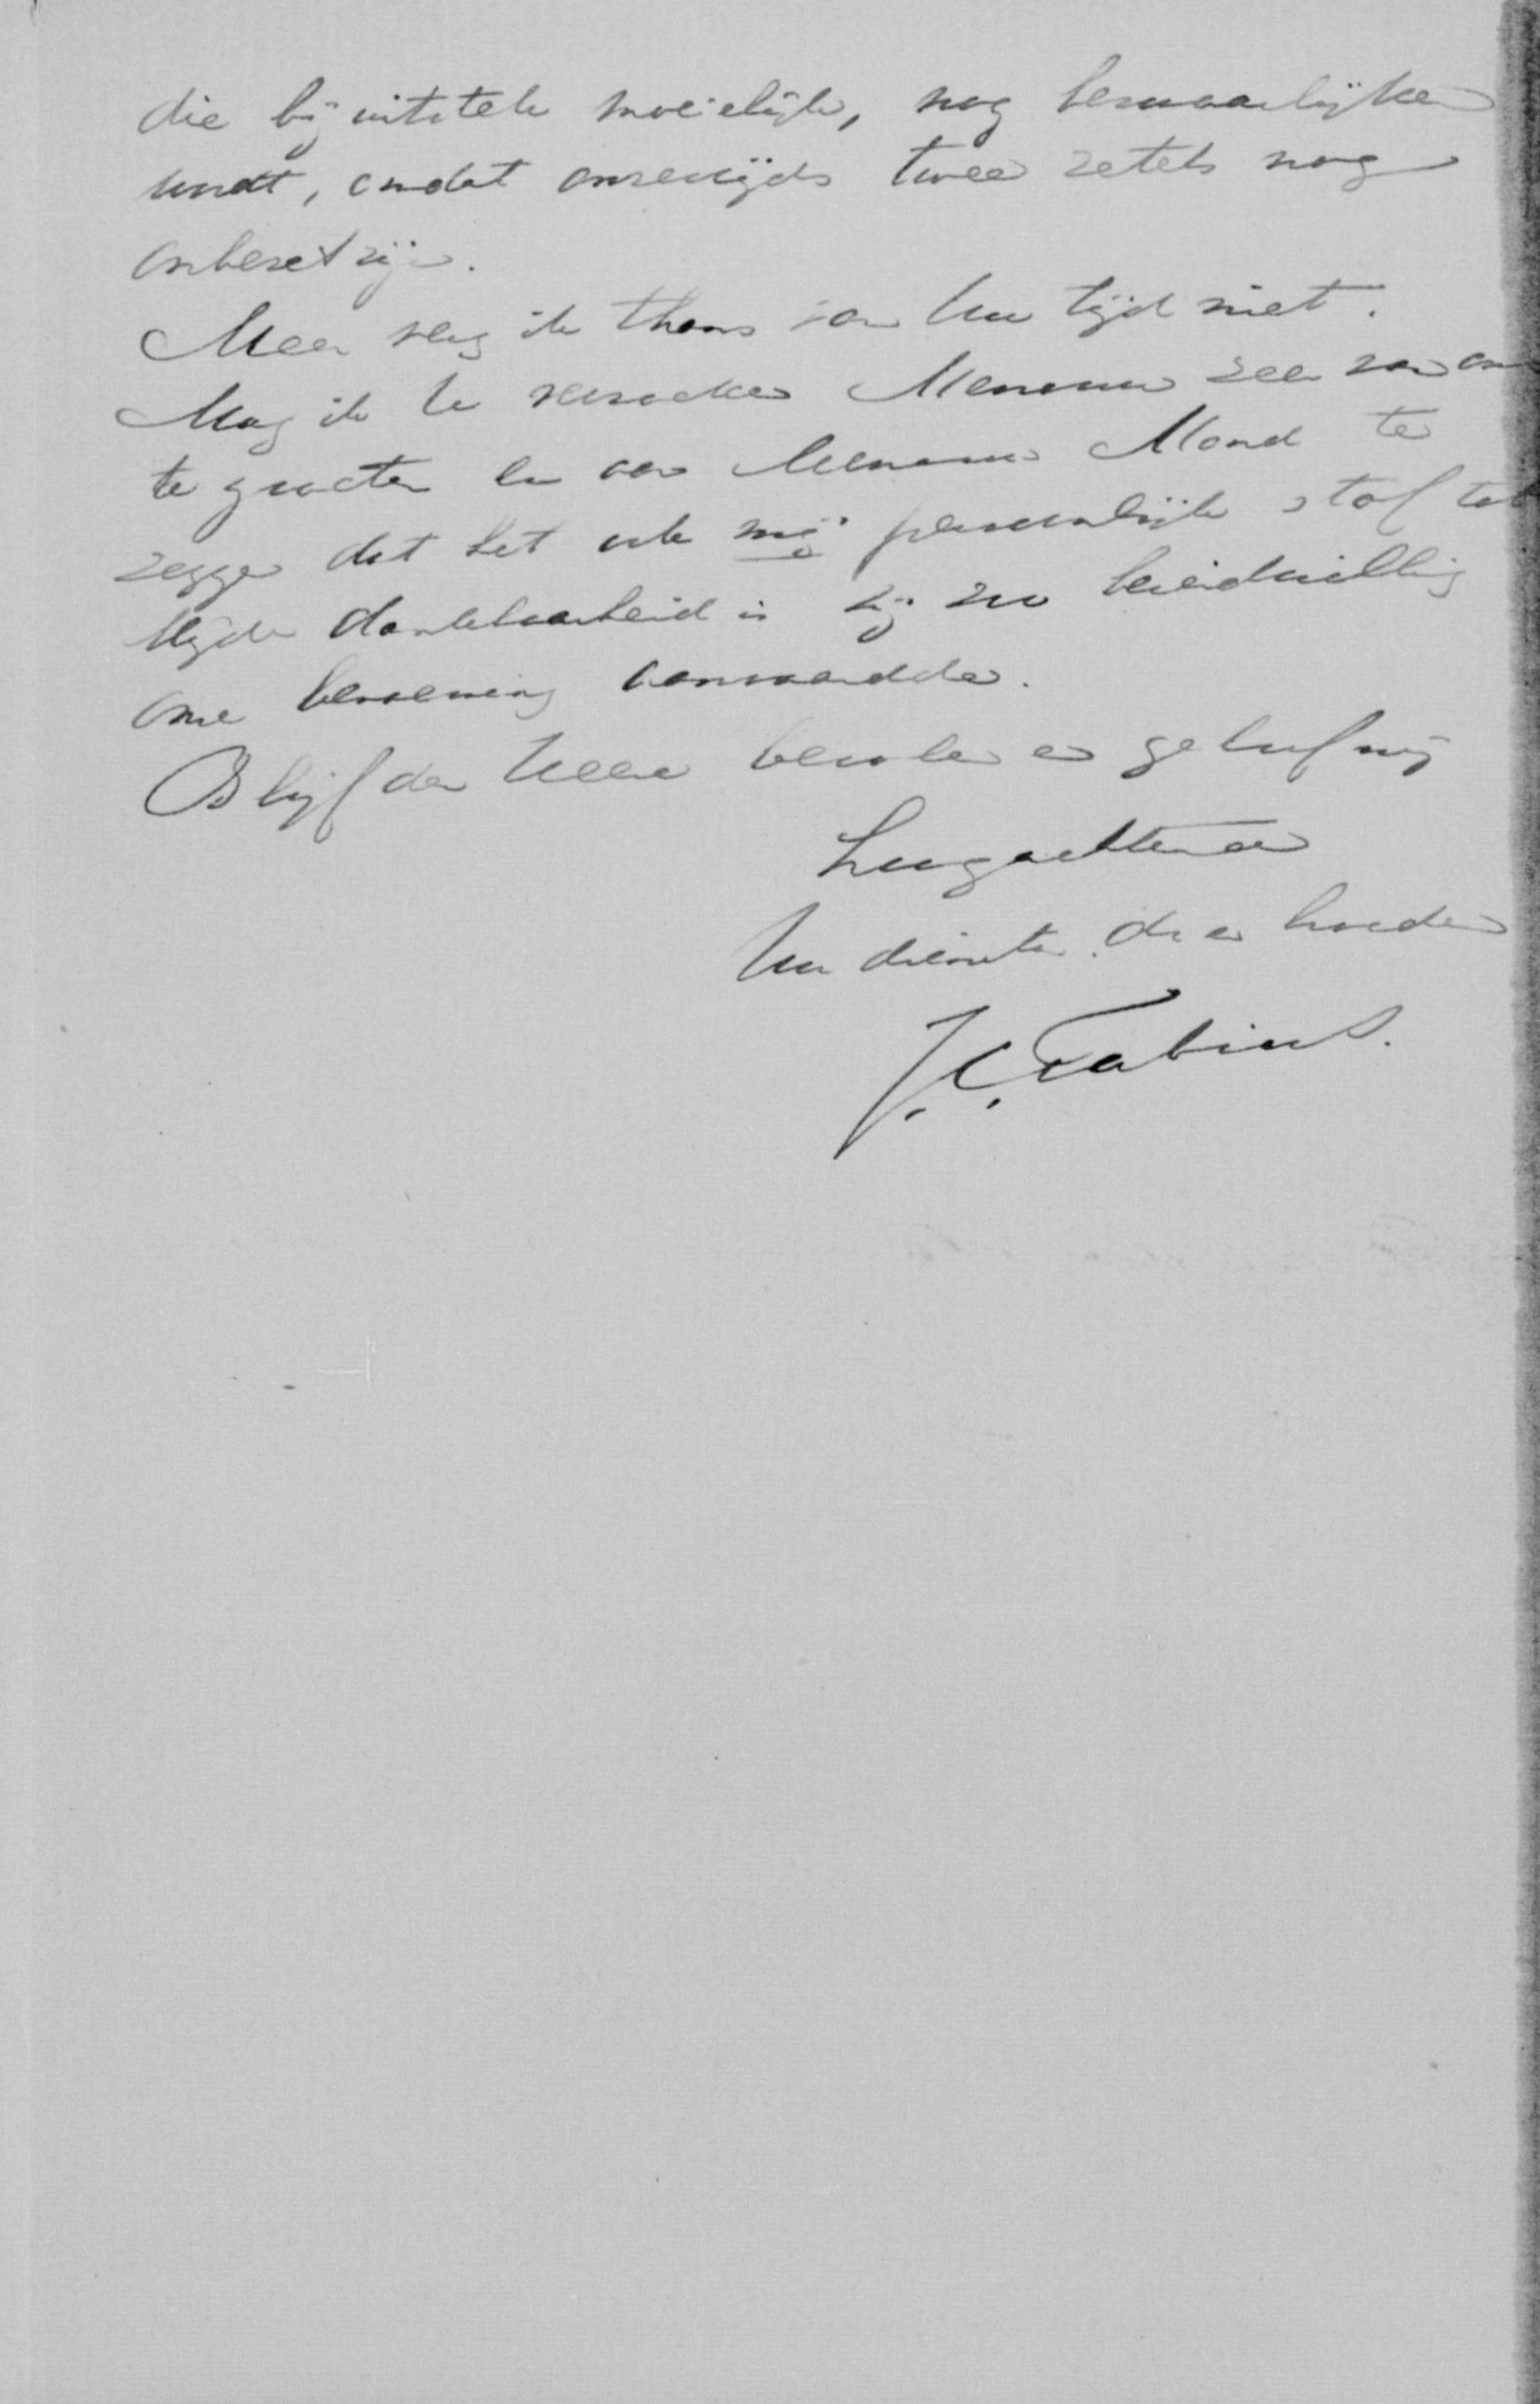 die bij uitstek moeielijk, nog bezwaarlijker
wordt, omdat onzerzijds twee zetels nog
onbezet zijn.
Meer verg ik thans van Uw tijd niet.
Mag ik U verzoeken Mevrouw zeer van ons
te groeten en aan Mevrouw Mond te
zeggen dat het ook mij persoonlijk stof tot
blijde dankbaarheid is zij zoo bereidwillig
onze benoeming aanvaardde.
Blijf den Heere bevolen en geloof mij
Hoogachtend
Uw dienstw. dr en broeder
J. C. Fabius.